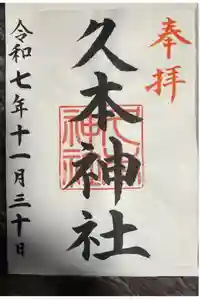 奉拝
久本神社
令和七年十一月三十日